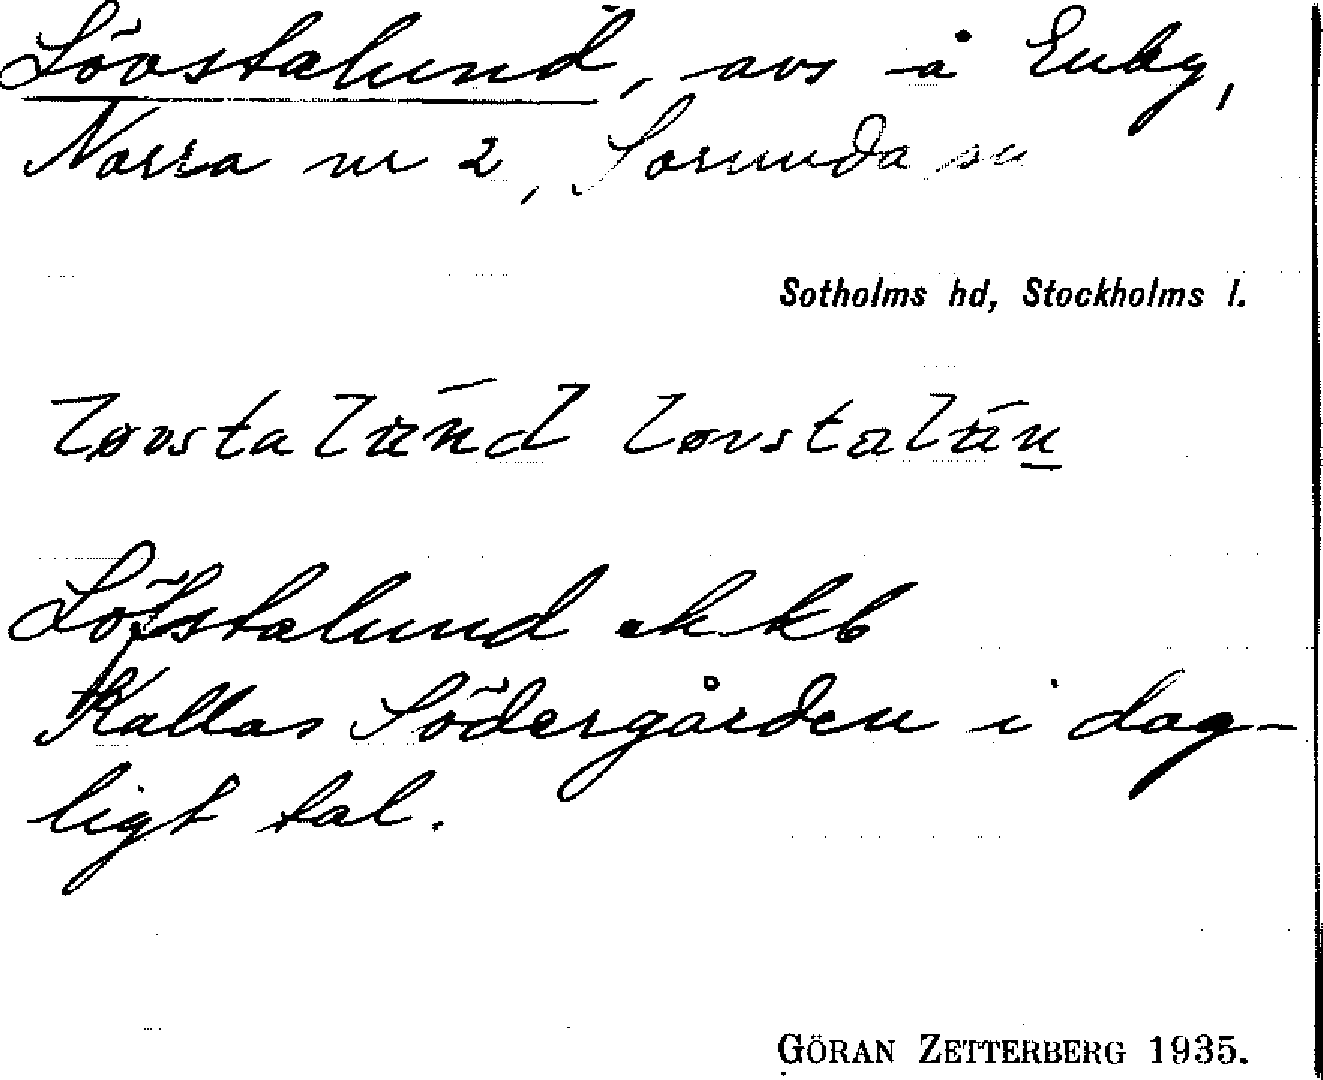 Lövstalund, avs å Enby,
Norra nr 2, Sorunda sn
Sotholms hd, Stockholms l.
Löfstalund ek kb
Kallas Södergården i dag-
ligt tal.
GÖRAN ZETTERBERG 1935.